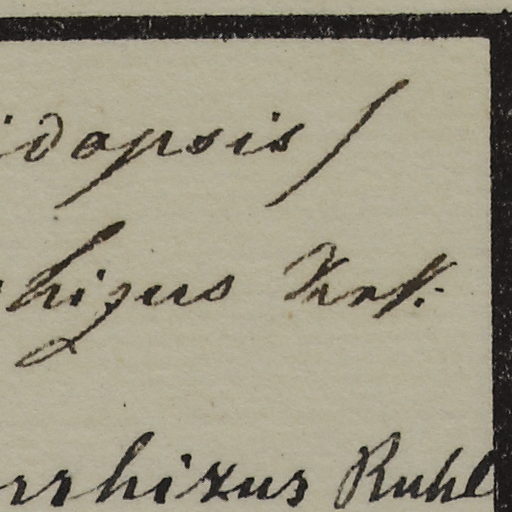 idopsis)
hizus Krk.
rrhizus Ruhl